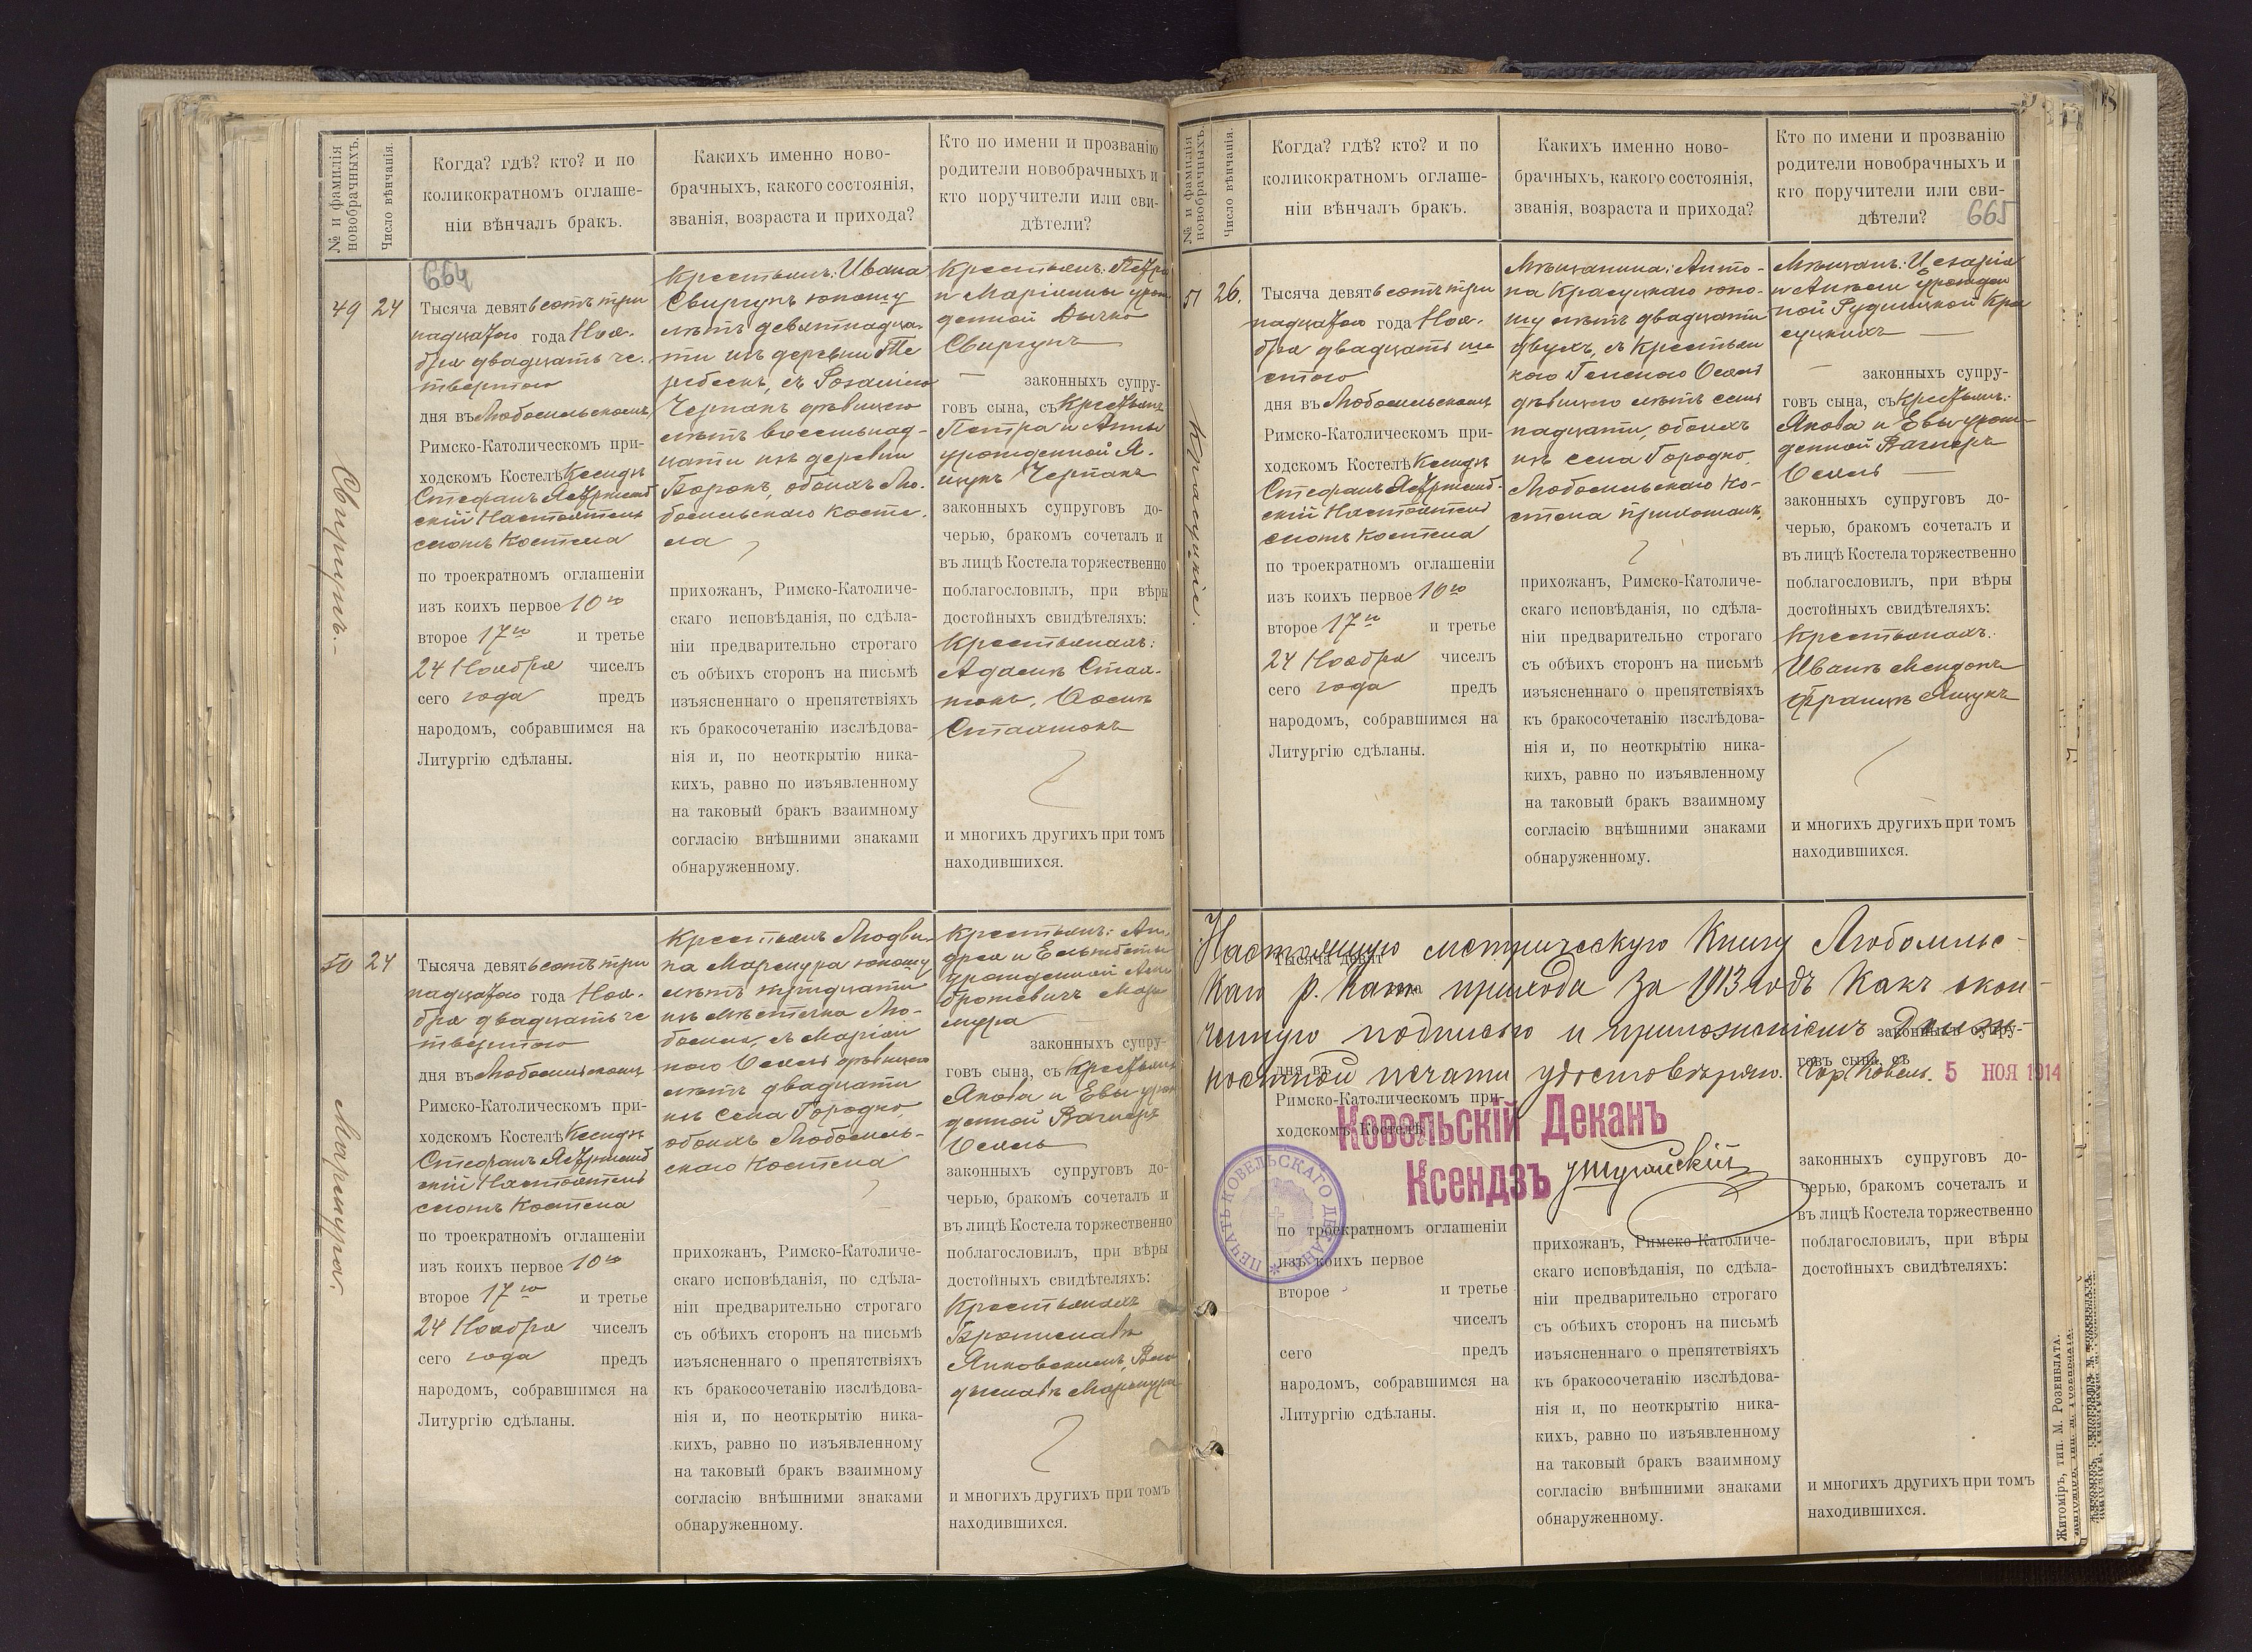 № и фамилія новобрачныхъ.
Число вѣнчанія.
Когда? гдѣ? кто? и по
коликократномъ оглаше-
ніи вѣнчалъ бракъ.
Какихъ именно ново-
брачныхъ, какого состоянія,
званія, возраста и прихода?
Кто по имени и прозванію
родители новобрачныхъ и
кто поручители или сви-
дѣтели?
664
49
24
Свиргунъ.
Тысяча девятьсотъ три
надцатаго года Ноя-
бря двадцать че-
твертаго
дня въ Любомльскомъ
Римско-Католическомъ при-
ходскомъ Костелѣ Ксендзъ
Стефанъ Ястржемб
скій Настоятель
сего Костела
по троекратномъ оглашеніи
изъ коихъ первое 10го
второе 17го и третье
24 Ноября чиселъ
сего года предъ
народомъ, собравшимся на
Литургію сдѣланы.
Крестьянъ: Ивана
Свиргунъ юношу
лѣтъ девятнадца-
ти изъ деревни Те
ребейки, съ Розалією
Черпакъ дѣвицею
лѣтъ восемьнад-
цати изъ деревни
Борокъ, обоихъ Лю-
бомльскаго Косте-
ла
прихожан, Римско-Католиче-
скаго исповѣданія, по сдѣла-
ніи предварительно строгаго
съ обѣихъ сторонъ на письмѣ
изъясненнаго о препятствіяхъ
къ бракосочетанію изслѣдова-
нія и, по неоткрытію ника-
кихъ, равно по изъявленному
на таковый бракъ взаимному
согласію внѣшними знаками
обнаруженному.
Крестьянъ: Петра
и Маріанны урож-
денной
Свиргунъ
законныхъ супру-
говъ сына, съ Крестьянъ
Петра и Анны
урожденной Я-
щукъ Черпакъ
законныхъ супруговъ до-
черью, бракомъ сочеталъ и
въ лицѣ Костела торжественно
поблагословилъ, при вѣры
достойныхъ свидѣтеляхъ:
Крестьянахъ:
Адамъ Стаа-
тюкъ, Осипъ
Стаатюкъ
и многихъ другихъ при томъ
находившихся.
50
24
Марцмура.
Тысяча девятьсотъ три
надцатаго года Ноя-
бря двадцать че
твертаго
дня въ Любомльскомъ
Римско-Католическомъ при-
ходскомъ Костелѣ Ксендзъ
Стефанъ Ястржемб
скій Настоятель
сего Костела
по троекратномъ оглашеніи
изъ коихъ первое 10го
второе 17го и третье
24 Ноября чиселъ
сего года предъ
народомъ, собравшимся на
Литургію сдѣланы.
Крестьянъ Людви-
ка юношу
лѣтъ тридцати
изъ мѣстечка Лю-
бомля, съ Маріан
ною дѣвицею
лѣтъ двадцати
изъ села Городно,
обоихъ Любомль-
скаго Костела
прихожанъ, Римско-Католиче-
скаго исповѣданія, по сдѣла-
ніи предварительно строгаго
съ обѣихъ сторонъ на письмѣ
изъясненнаго о препятствіяхъ
къ бракосочетанію изслѣдова-
нія и, по неоткрытію ника-
кихъ, равно по изъявленному
на таковый бракъ взаимному
согласію внѣшними знаками
обнаруженному.
Крестьянъ: Ан-
дрея и Ельжбеты
урожденной Ам
брожевичъ
законныхъ супру-
говъ сына, съ Крестьянъ
Якова и Евы урож
денной Вагнеръ
законныхъ супруговъ до-
черью, бракомъ сочеталъ и
въ лицѣ Костела торжественно
поблагословилъ, при вѣры
достойныхъ свидѣтеляхъ:
Крестьянахъ
Брониславъ
Янковскимъ, Вла
дыславъ
и многихъ другихъ при томъ
находившихся.
№ и фамилія новобрачныхъ.
Число вѣнчанія.
Когда? гдѣ? кто? и по
коликократномъ оглаше-
ніи вѣнчалъ бракъ.
Какихъ именно ново-
брачныхъ, какого состоянія,
званія, возраста и прихода?
Кто по имени и прозванію
родители новобрачныхъ и
кто поручители или сви-
дѣтели?
665
51
26.
Красуцкіе.
Тысяча девятьсотъ три
надцатаго года Ноя-
бря двадцать ше
стого
дня въ Любомльскомъ
Римско-Католическомъ при-
ходскомъ Костелѣ Ксендзъ
Стефанъ Ястржемб-
скій Настоятель
сего Костела
по троекратномъ оглашеніи
изъ коихъ первое 10го
второе 17го и третье
24 Ноября чиселъ
сего года предъ
народомъ, собравшимся на
Литургію сдѣланы.
Мѣщанина: Анто-
на Красуцкаго юно-
шу лѣтъ двадцати
двухъ, съ Крестьян
кою
дѣвицею лѣтъ семь
надцати, обоихъ
изъ села Городно,
Любомльскаго Ко-
стела прихожанъ,
прихожан, Римско-Католиче-
скаго исповѣданія, по сдѣла-
ніи предварительно строгаго
съ обѣихъ сторонъ на письмѣ
изъясненнаго о препятствіяхъ
къ бракосочетанію изслѣдова-
нія и, по неоткрытію ника-
кихъ, равно по изъявленному
на таковый бракъ взаимному
согласію внѣшними знаками
обнаруженному.
Мѣщанъ: Цезарія
и Анели урожден
ной Рудницкой Кра
суцкихъ
законныхъ супру-
говъ сына, съ Крестьянъ:
Якова и Евы урож-
денной Вагнеръ
законныхъ супруговъ до-
черью, бракомъ сочеталъ и
въ лицѣ Костела торжественно
поблагословилъ, при вѣры
достойныхъ свидѣтеляхъ:
Крестьянахъ:
Иванъ
Францъ Ящукъ
и многихъ другихъ при томъ
находившихся.
Настоящую метрическую Книгу Любомльс-
каго р. кат. прихода за 1913 годъ какъ окон-
ченную подписью и приложеніемъ долж-
ностной печати удостовѣряю. Гор. Ковель. 5 НОЯ 1914
Ковельскій Деканъ
Ксендзъ
ПЕЧАТЬ КОВЕЛЬСКАГО ДЕКАНА
Тысяча девят
года
дня въ
Римско-Католическомъ при-
ходскомъ Костелѣ
по троекратномъ оглашеніи
изъ коихъ первое
второе и третье
чиселъ
сего предъ
народомъ, собравшимся на
Литургію сдѣланы.
прихожанъ, Римско-Католиче-
скаго исповѣданія, по сдѣла-
ніи предварительно строгаго
съ обѣихъ сторонъ на письмѣ
изъясненнаго о препятствіяхъ
къ бракосочетанію изслѣдова-
нія и, по неоткрытію ника-
кихъ, равно по изъявленному
на таковый бракъ взаимному
согласію внѣшними знаками
обнаруженному.
законныхъ супру-
говъ сына, съ
законныхъ супруговъ до-
черью, бракомъ сочеталъ и
въ лицѣ Костела торжественно
поблагословилъ, при вѣры
достойныхъ свидѣтеляхъ:
и многихъ другихъ при томъ
находившихся.
Житоміръ, тип. М. Розенблата.